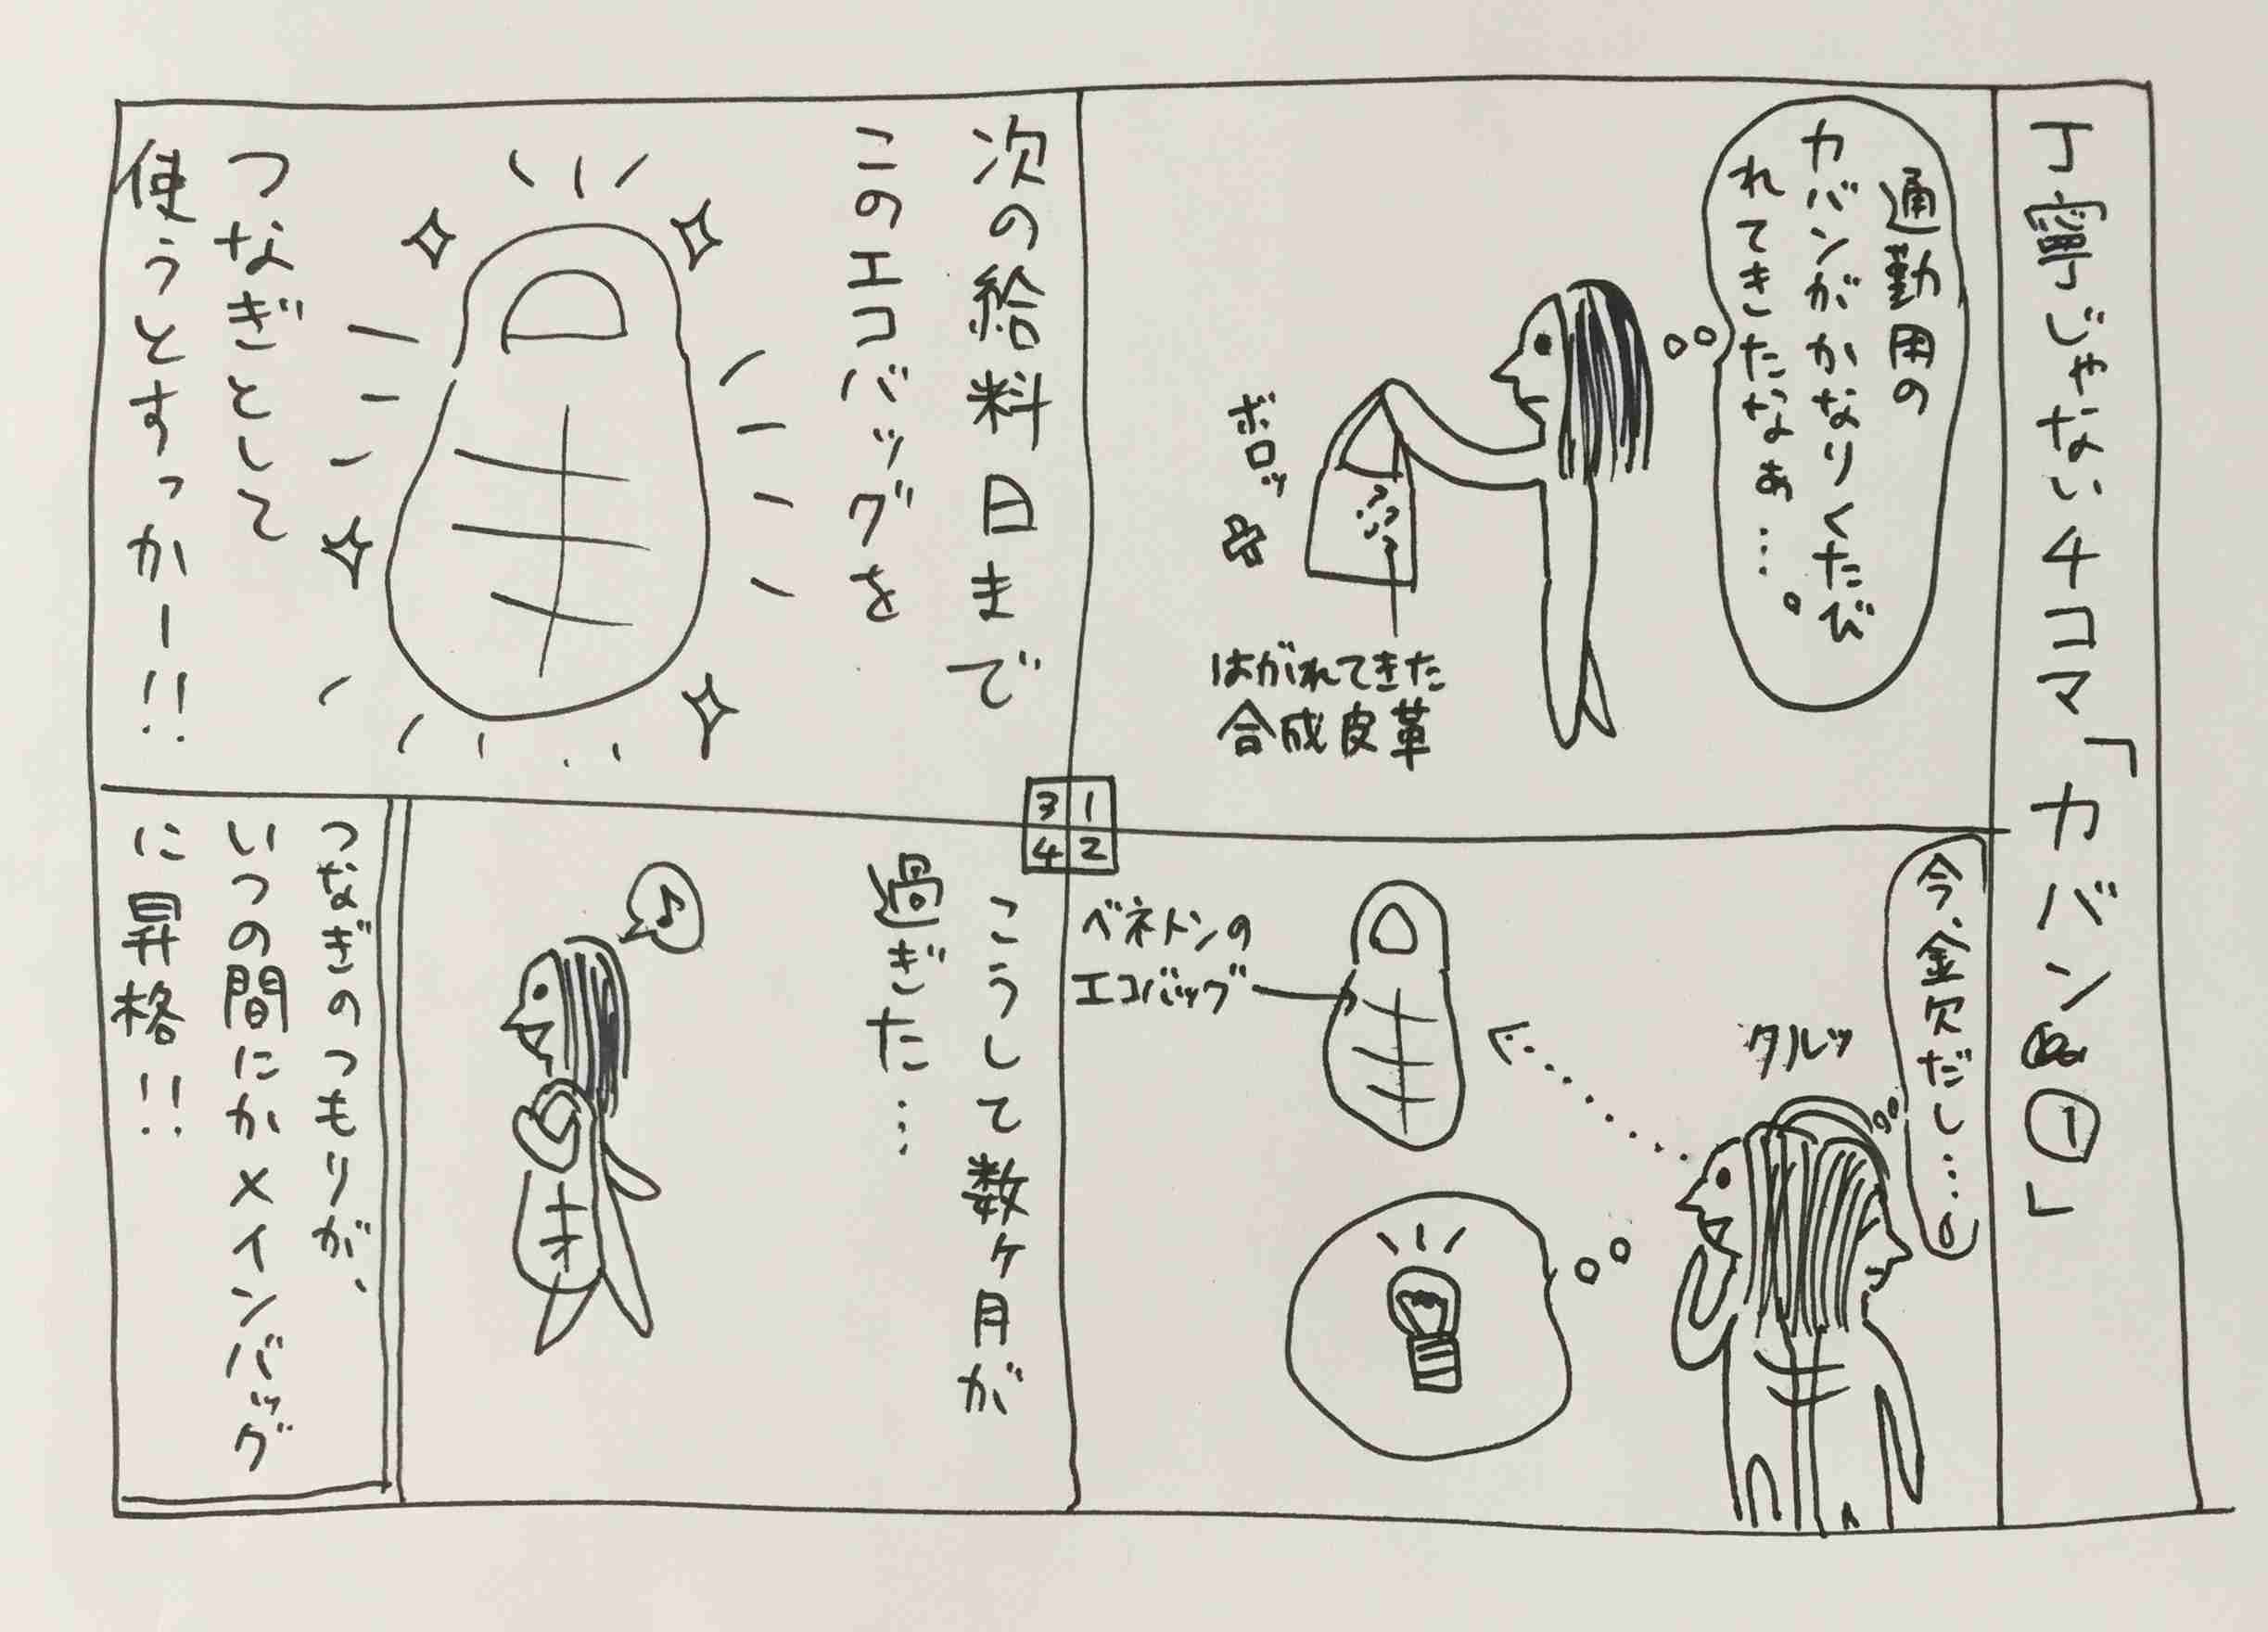 丁寧じゃない4コマ「カバン①」
通勤用の
カバンがかなりくたび
れてきたなぁ…。
ボロッ
はがれてきた
合成皮革
1
2
3
4
今、金欠だし…。
クルッ
ベネトンの
エコバッグ
次の給料日まで
このエコバッグを
つなぎとして
使うとすっかー!!
こうして数ヶ月が
過ぎた…
♪
つなぎのつもりが、
いつの間にかメインバッグ
に昇格!!